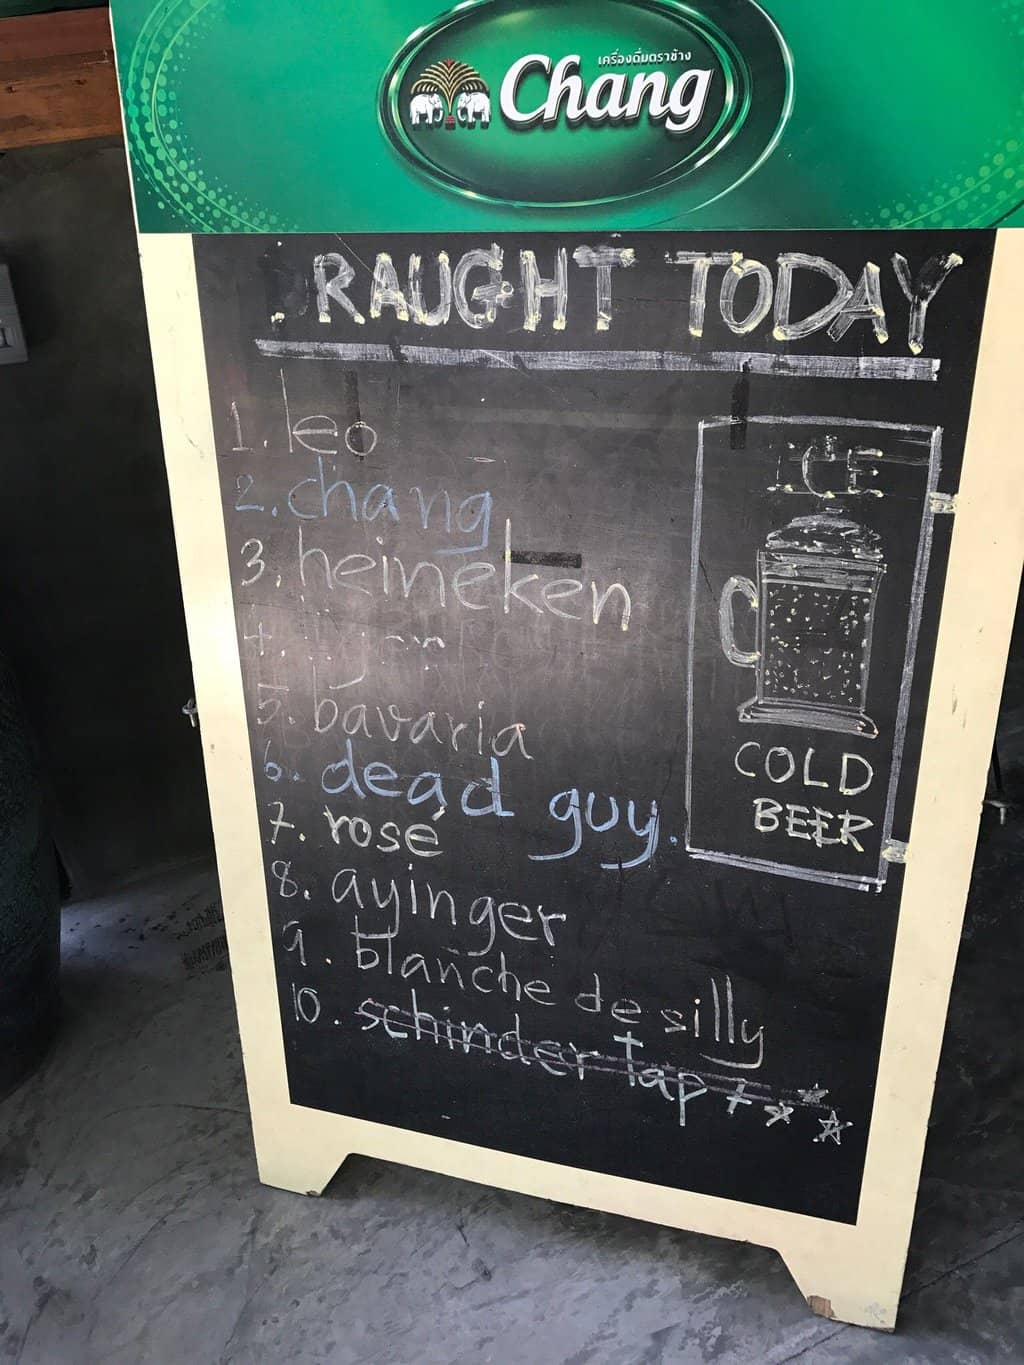 เครื่องดื่มตราช้าง
Chang
RAUGHT TODAY
1. leo
2. chang
3. heineken
4.
5. bavaria
6. dead guy.
7. rosé
8. ayinger
9. blanche de silly
10. schinder tap 7
ICE
COLD
BEER